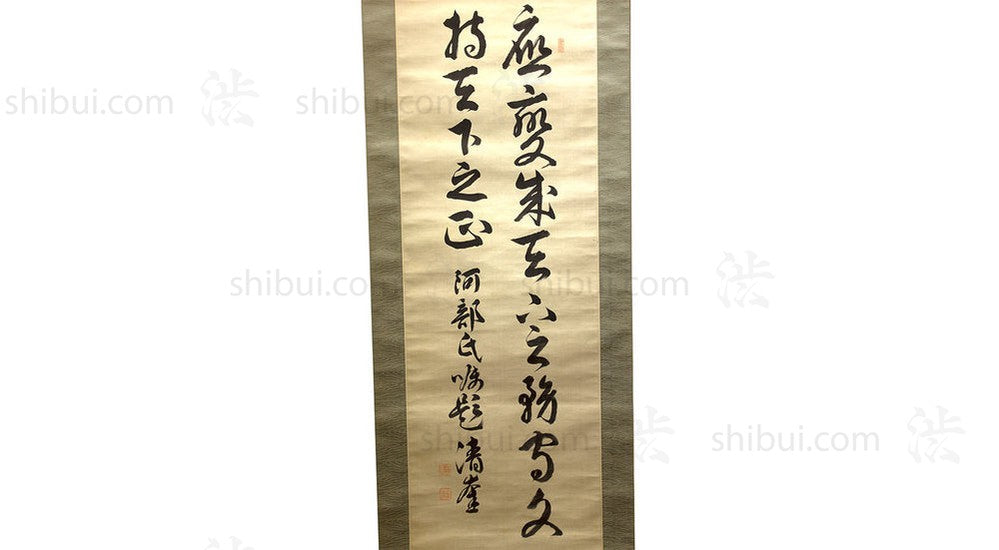 應變成天下之務守文
持天下之正 阿部氏嘱題 清奎
shibui.com 渋 shibui.com
shibui.com shibui.com 渋
shibui.com 渋 shibui.com 渋